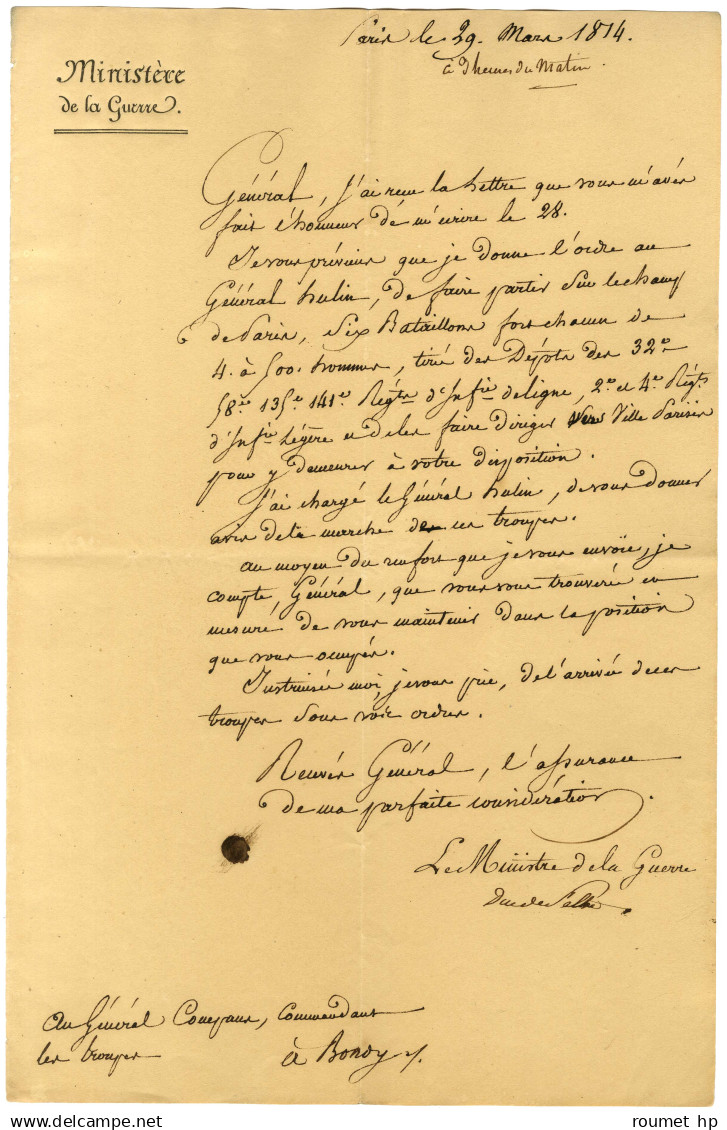 Paris le 29. Mars 1814.
à 9 heures du Matin.
Ministère
de la Guerre.
Général, J'ai reçu la lettre que vous m'avés
fait l'honneur de m'écrire le 28.
Je vous préviens que je donne l'ordre au
Général hulin, de faire partir sur le champ
de Paris, Six Bataillons fort chacun de
4. à 500. hommes, tiré des Dépôts des 32e.
58e. 135e. 141e. Régts. d'Infie. de ligne, 2e. et 4e. Régts.
d'Infie. Légère et de les faire diriger vers Ville Parisis
pour y demeurer à votre disposition.
J'ai chargé le Général hulin, de vous donner
avis de la marche de ces troupes.
au moyen du renfort que je vous envoie, je
compte, Général, que vous vous trouveré en
mesure de vous maintenir dans la position
que vous occupés.
Instruisés moi, je vous prie, de l'arrivée de ces
troupes sous vos ordres.
Recevés Général, l'assurance
de ma parfaite considération.
Le Ministre de la Guerre
Duc de Feltre.
Au Général Compans, Commandant
les troupes à Bondy
roumet hp